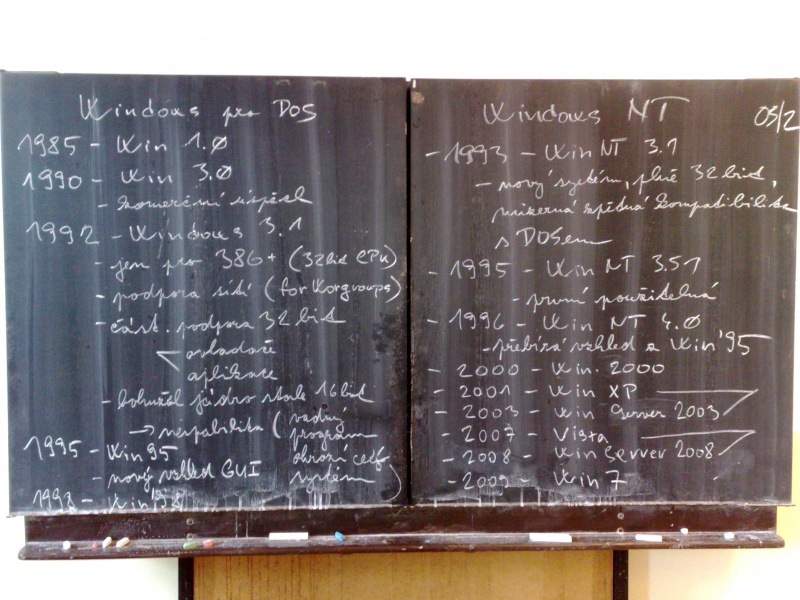 Windows pro DOS
1985 - Win 1.0
1990 - Win 3.0
- komerční úspěch
1992 - Windows 3.1
- jen pro 386+ (32bit CPU)
- podpora sítí (for Worgroups)
- část. podpora 32 bit
ovladače
aplikace
- bohužel jádro stále 16bit
→ nestabilita (vadný
program
ohrozí celý
systém)
1995 - Win 95
- nový vzhled GUI
1998 - Win '98
Windows NT
03/2
- 1993 - Win NT 3.1
- nový systém, plně 32bit,
mizerná zpětná kompatibilita
s DOSem
- 1995 - Win NT 3.51
- první použitelná
- 1996 - Win NT 4.0
- přebírá vzhled z Win '95
- 2000 - Win. 2000
- 2001 - Win XP
- 2003 - Win Server 2003
- 2007 - Vista
- 2008 - Win Server 2008
- 2009 - Win 7